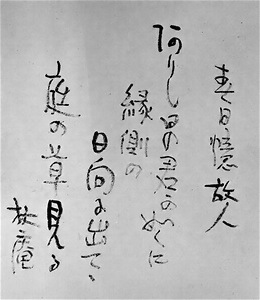 春日憶故人
ありし日の君の如くに
縁側の
日向に出でゝ
庭の草見る